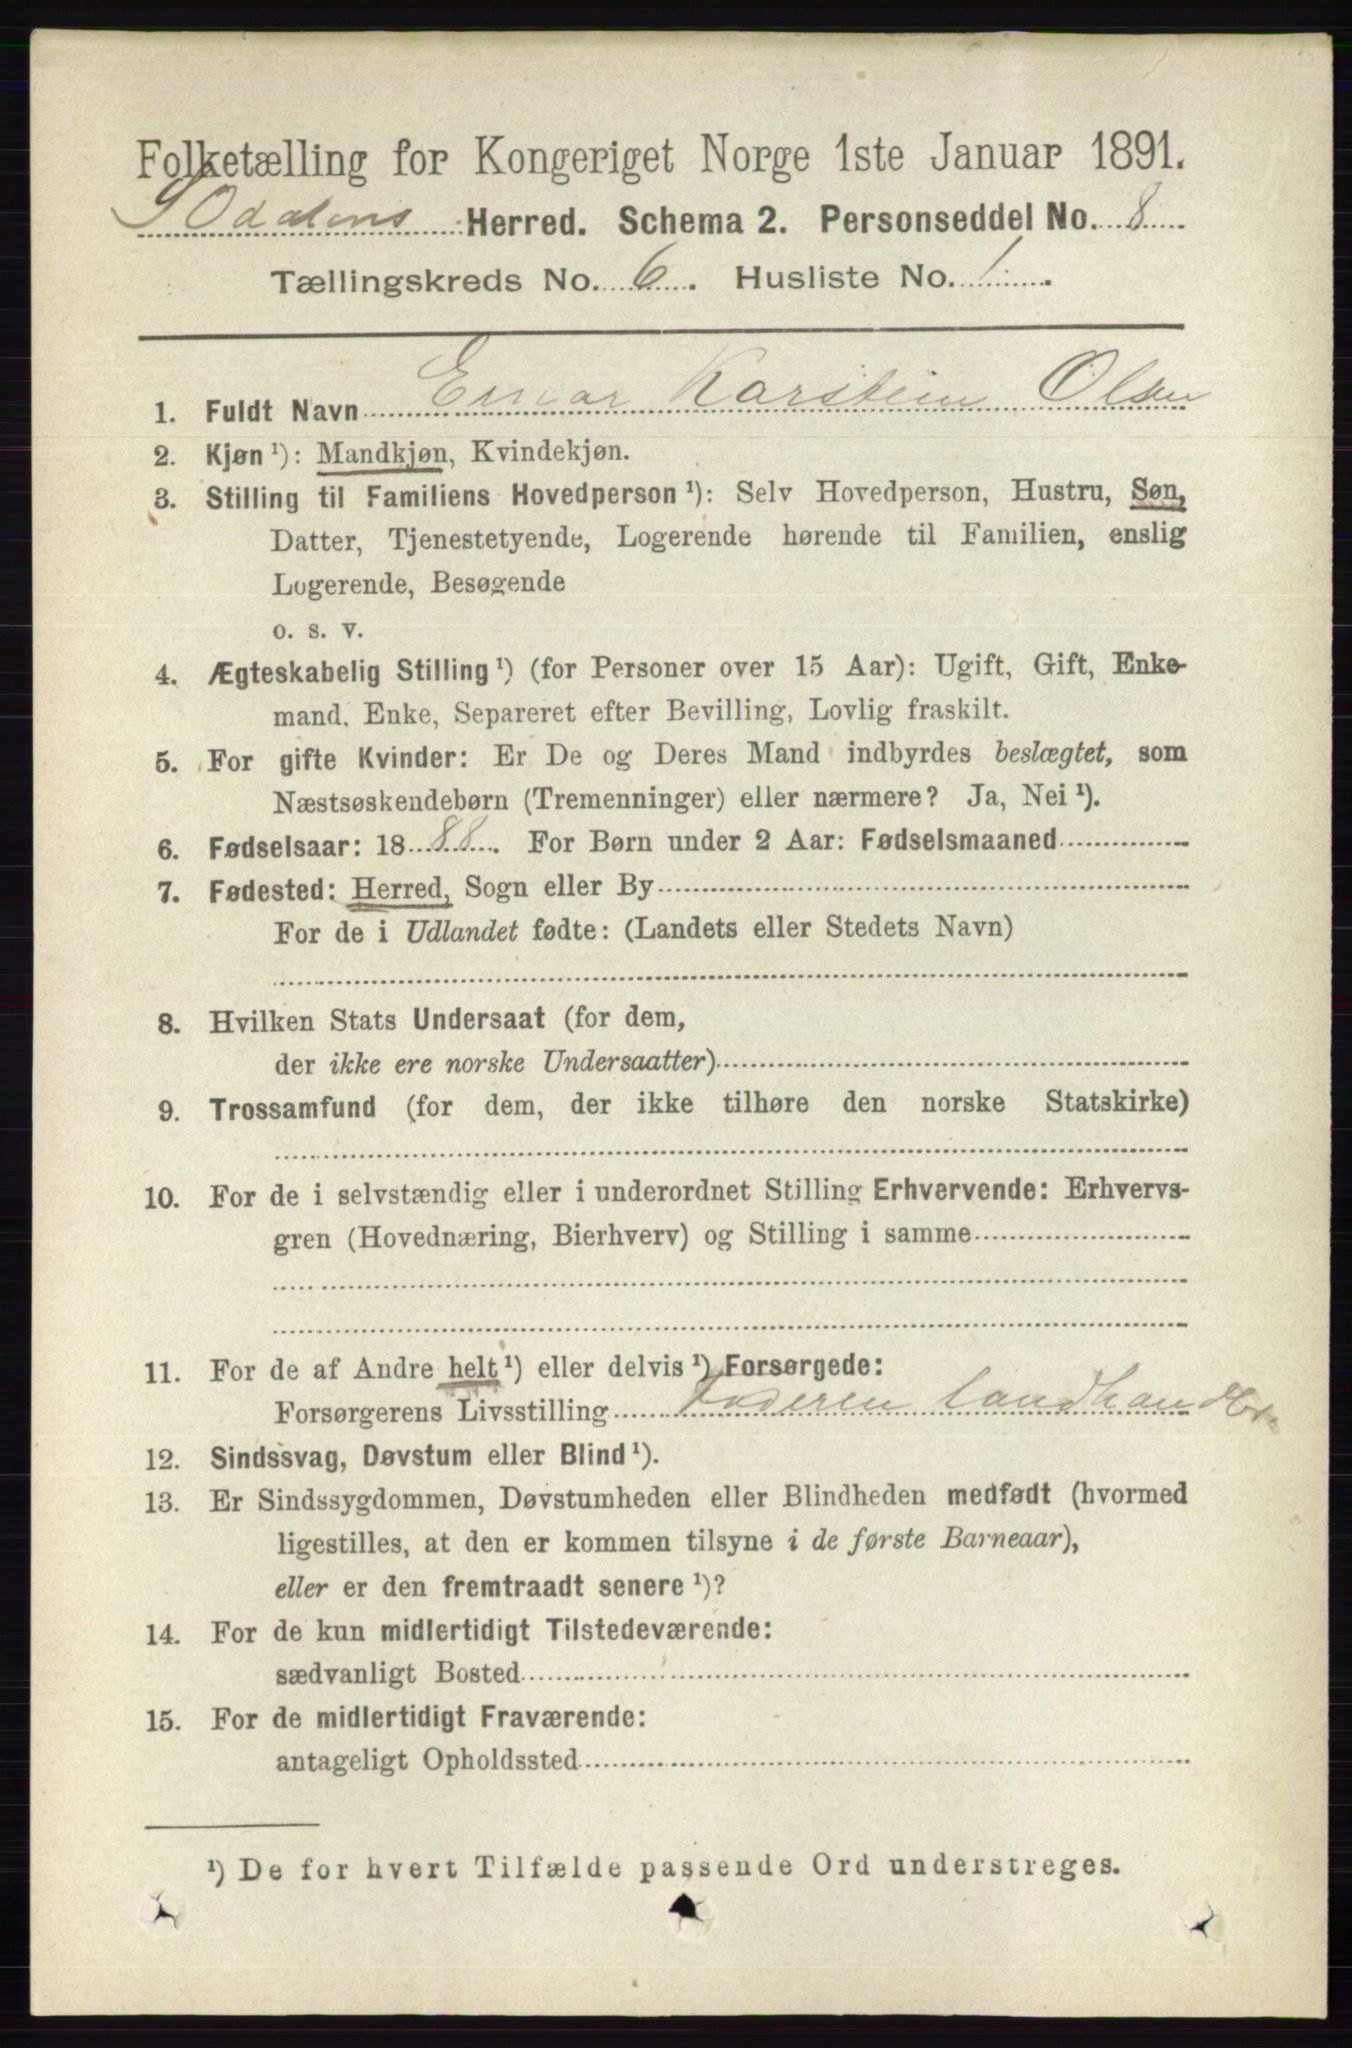 Folketælling for Kongeriget Norge 1ste Januar 1891.
S Odalens Herred. Schema 2. Personseddel No. 8
Tællingskreds No. 6. Husliste No. 1.
1. Fuldt Navn Einar Karstein Olsen
2. Kjøn ¹): Mandkjøn, Kvindekjøn.
3. Stilling til Familiens Hovedperson ¹): Selv Hovedperson, Hustru, Søn,
Datter, Tjenestetyende, Logerende hørende til Familien, enslig
Logerende, Besøgende
o. s. v.
4. Ægteskabelig Stilling ¹) (for Personer over 15 Aar): Ugift, Gift, Enke-
mand, Enke, Separeret efter Bevilling, Lovlig fraskilt.
5. For gifte Kvinder: Er De og Deres Mand indbyrdes beslægtet, som
Næstsøskendebørn (Tremenninger) eller nærmere? Ja, Nei ¹).
6. Fødselsaar: 18 88. For Børn under 2 Aar: Fødselsmaaned
7. Fødested: Herred, Sogn eller By
For de i Udlandet fødte: (Landets eller Stedets Navn)
8. Hvilken Stats Undersaat (for dem,
der ikke ere norske Undersaatter)
9. Trossamfund (for dem, der ikke tilhøre den norske Statskirke)
10. For de i selvstændig eller i underordnet Stilling Erhvervende: Erhvervs-
gren (Hovednæring, Bierhverv) og Stilling i samme
11. For de af Andre helt ¹) eller delvis ¹) Forsørgede:
Forsørgerens Livsstilling Faderen landhandler
12. Sindssvag, Døvstum eller Blind ¹).
13. Er Sindssygdommen, Døvstumheden eller Blindheden medfødt (hvormed
ligestilles, at den er kommen tilsyne i de første Barneaar),
eller er den fremtraadt senere ¹)?
14. For de kun midlertidigt Tilstedeværende:
sædvanligt Bosted
15. For de midlertidigt Fraværende:
antageligt Opholdssted
¹) De for hvert Tilfælde passende Ord understreges.